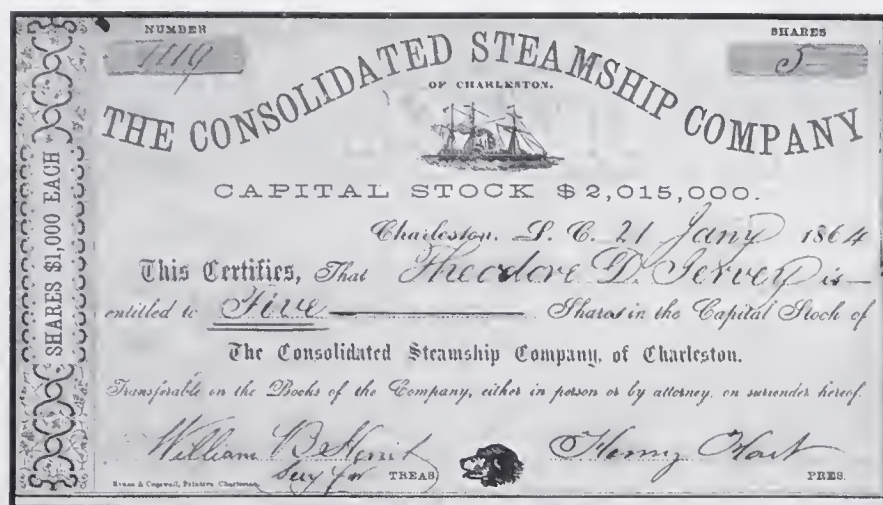 NUMBER
1119
SHARES
5
THE CONSOLIDATED STEAMSHIP COMPANY
OF CHARLESTON.
CAPITAL STOCK $2,015,000.
SHARES $1,000 EACH
Charleston, S. C. 21 Jany 1864
This Certifies, That Theodore D. Jervey is
entitled to Five Shares in the Capital Stock of
The Consolidated Steamship Company, of Charleston.
Transferable on the Books of the Company, either in person or by attorney, on surrender hereof.
William B. Henry Hart
Secy TREAS. PRES.
Evans & Cogswell, Printers, Charleston.